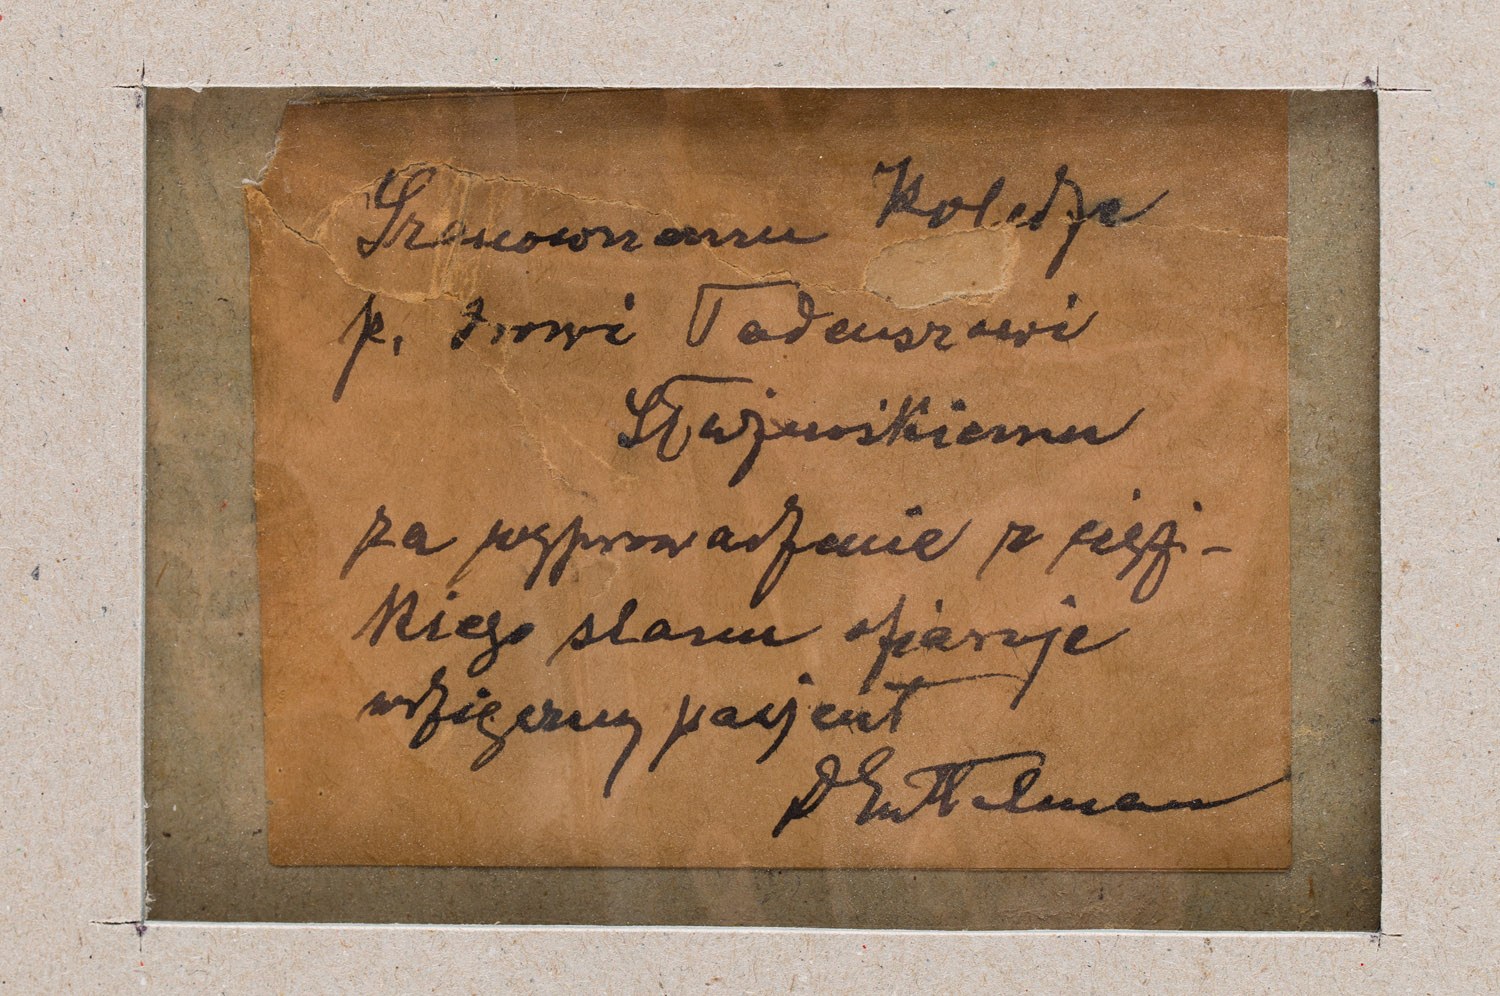 Szanownemu Koledze
p. drowi Tadeuszowi
Stajewskiemu
za wyprowadzenie z cięż-
kiego stanu ofiaruje
wdzięczny pacjent